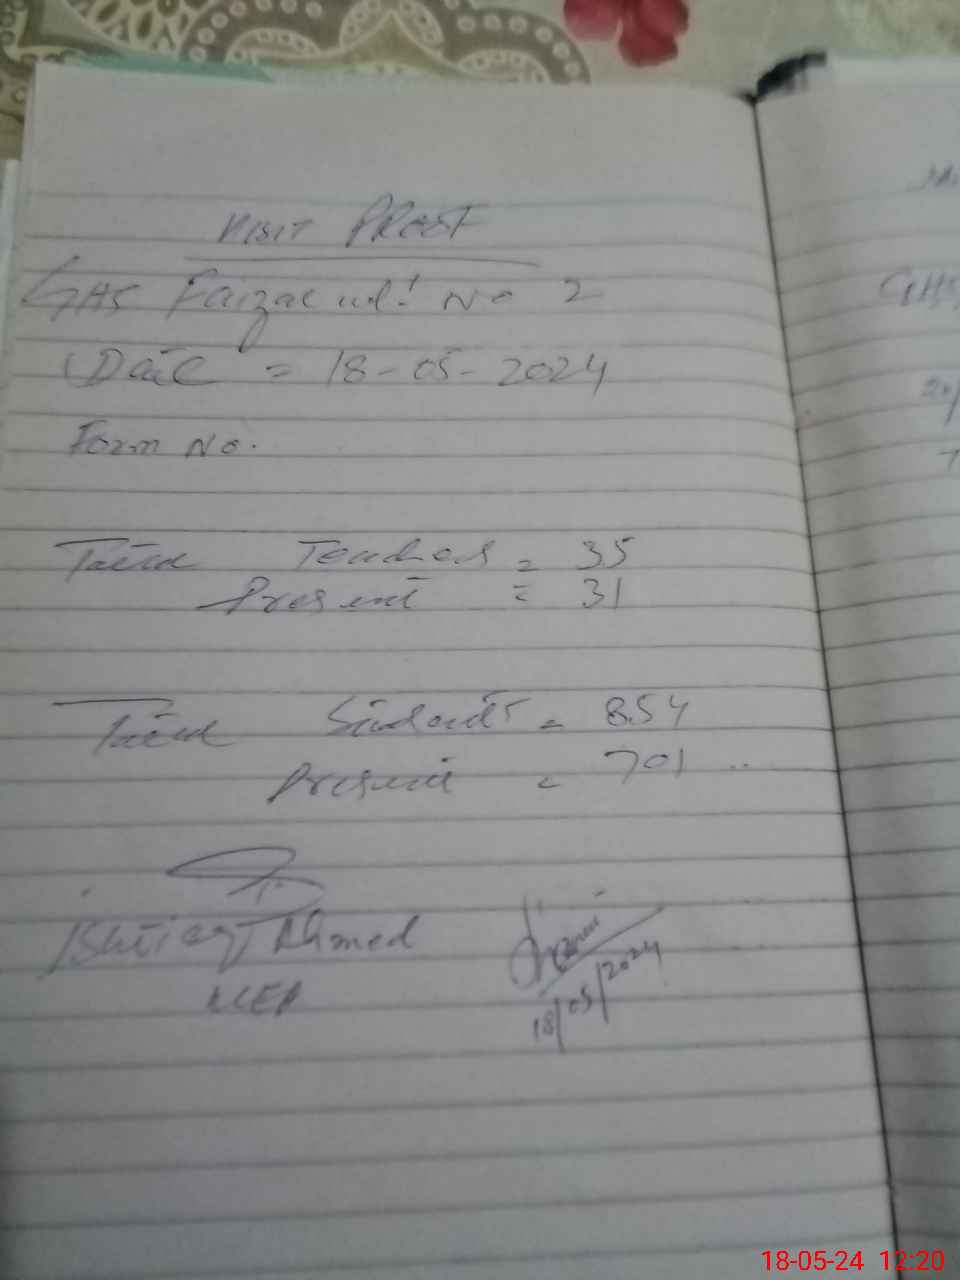 VISIT PROOF
GHS Faizabad No 2
Date = 18-05-2024
Form No.
Total Teachers = 35
Present = 31
Total Students = 854
Present = 701
Ishtiaq Ahmed
18/05/2024
GHS
18-05-24 12:20